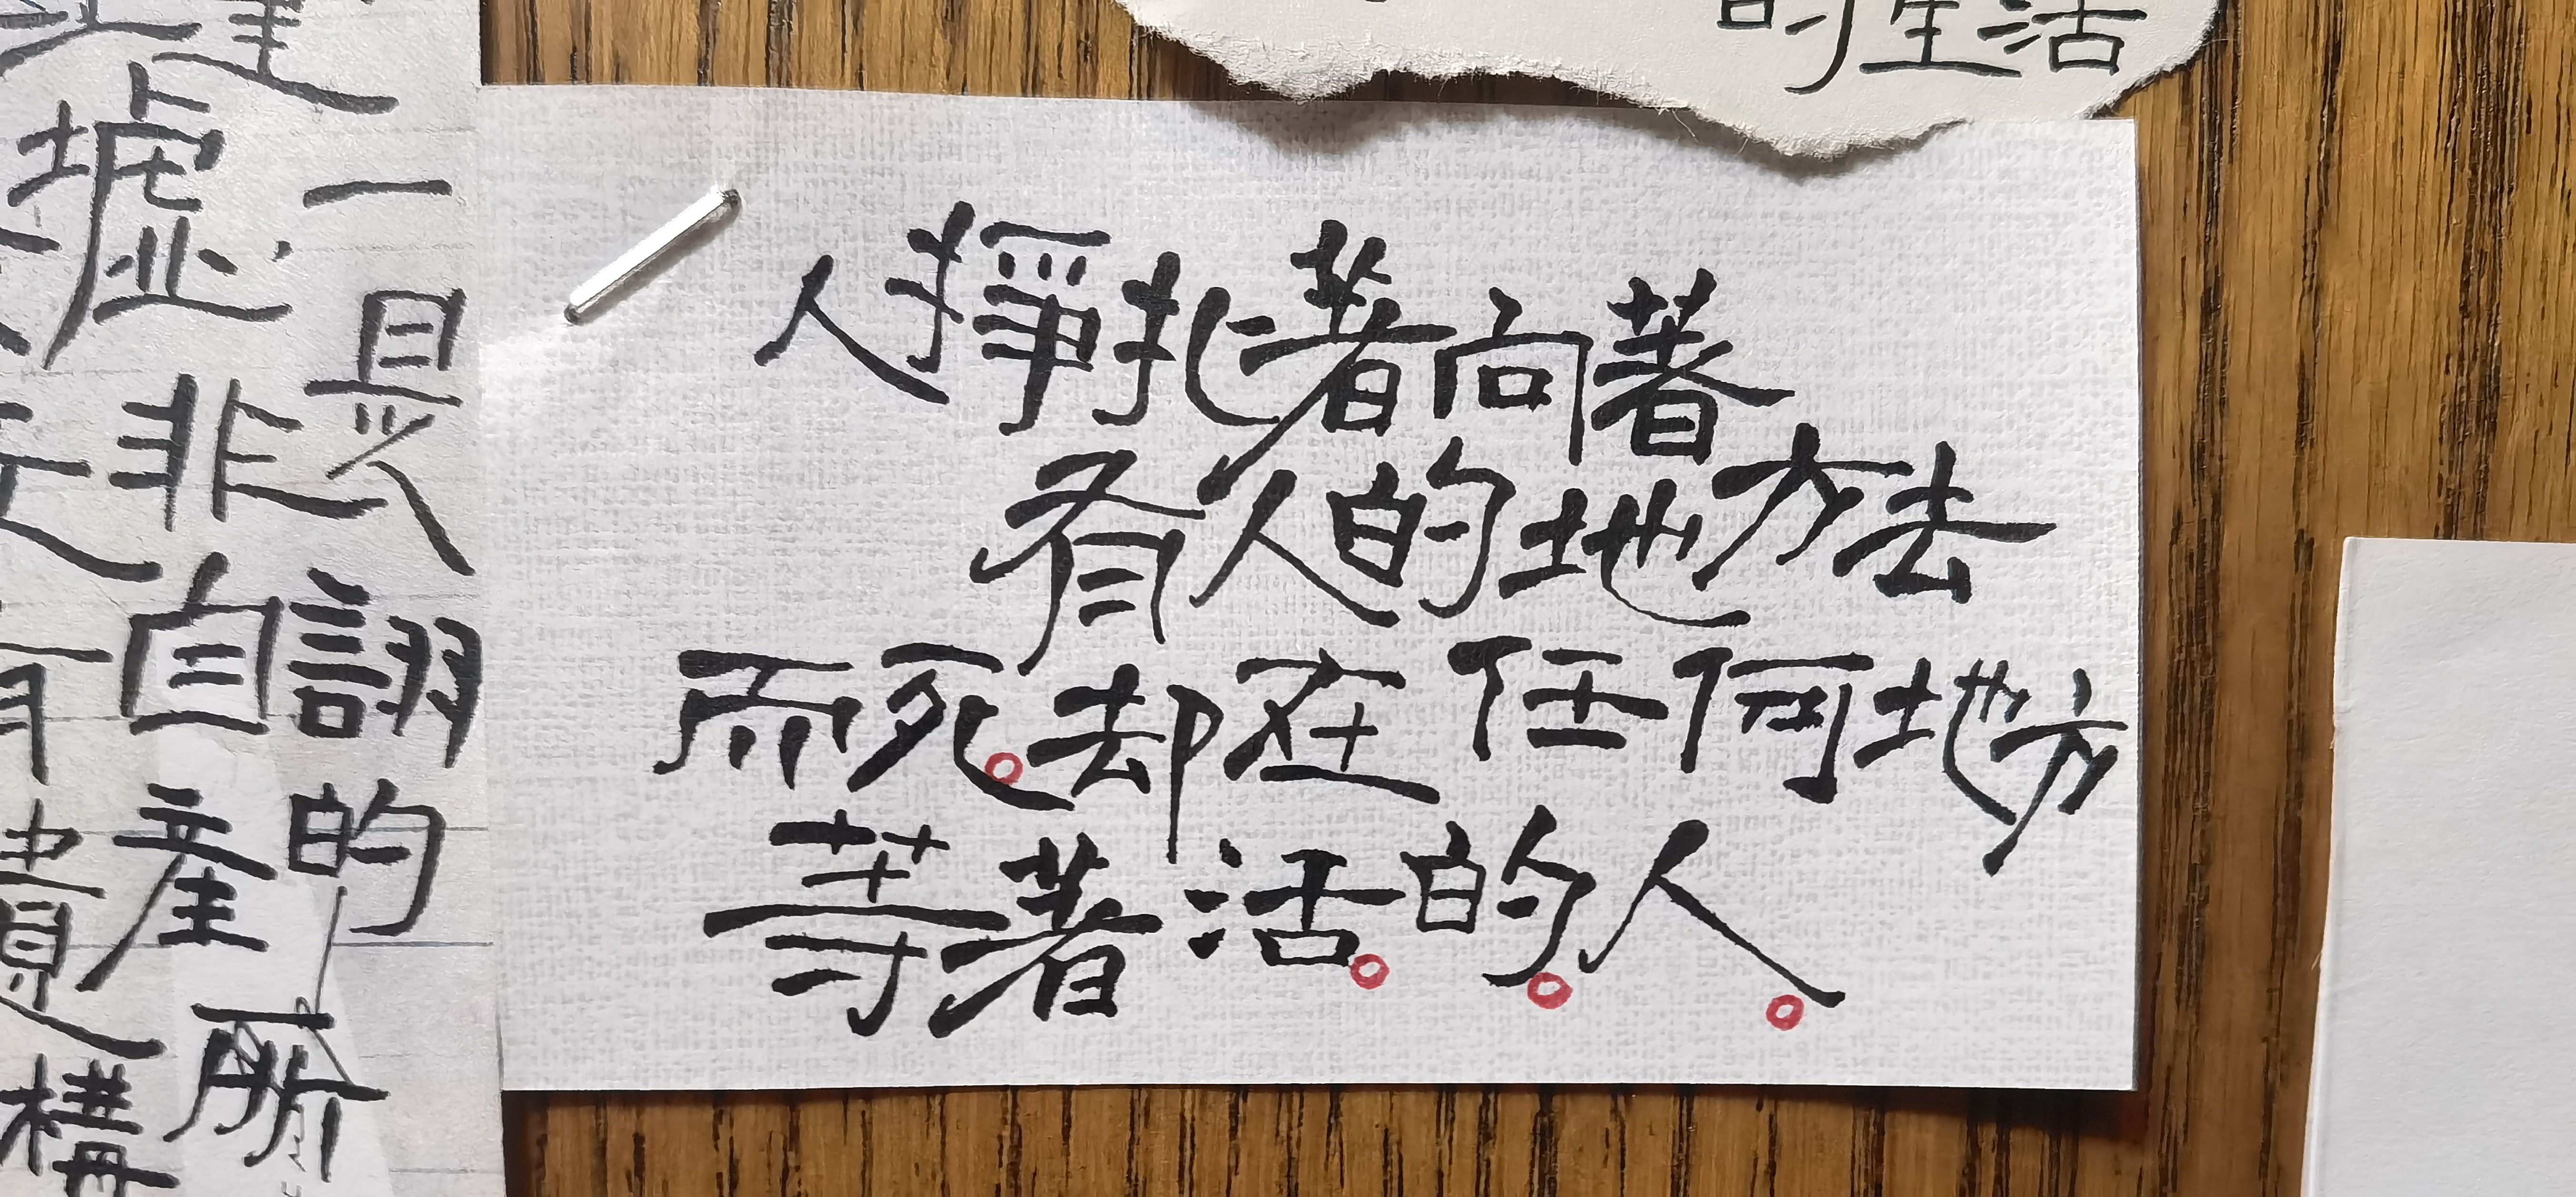 的生活
人掙扎著向著
有人的地方去
而死。却在任何地方
等著活。的。人。
一是詡的
墟非自產
構